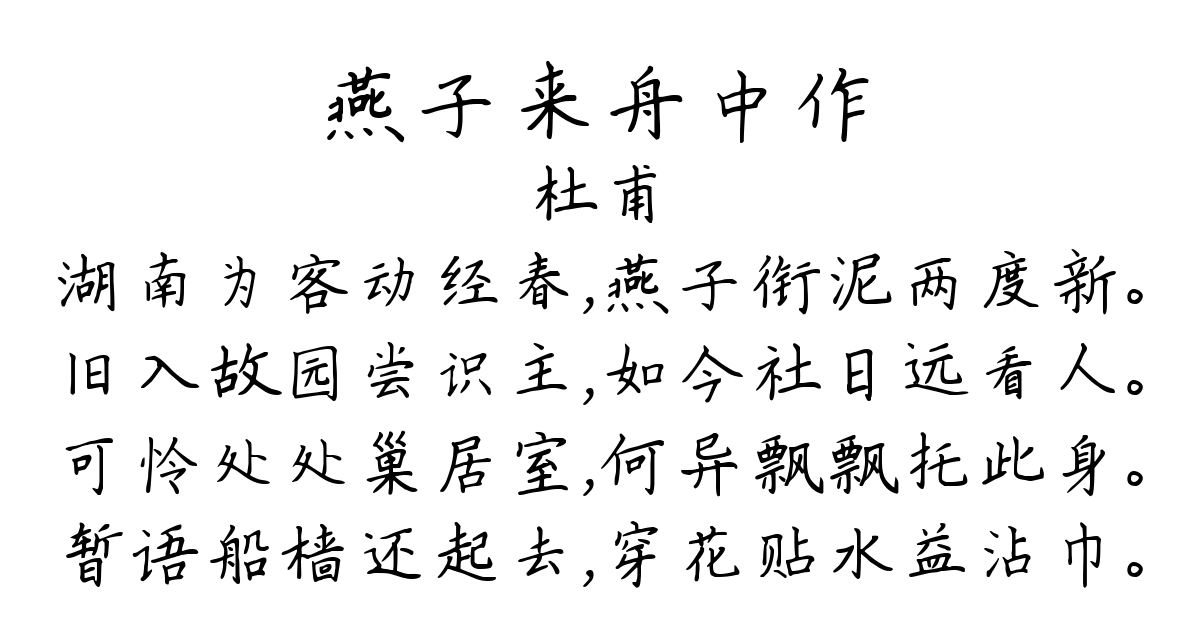 燕子来舟中作
杜甫
湖南为客动经春,燕子衔泥两度新。
旧入故园尝识主,如今社日远看人。
可怜处处巢居室,何异飘飘托此身。
暂语船樯还起去,穿花贴水益沾巾。